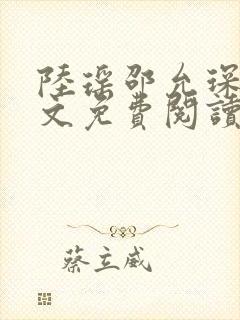 陸瑤邵允琛
文免費閱讀
蔡立威